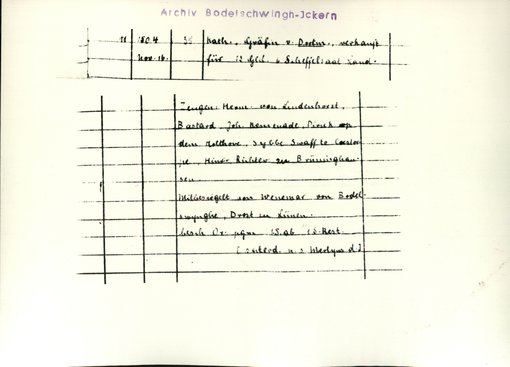 Archiv Bodelschwingh-Ickern
11 1504 35 Kath., Gräfin v. Dortm., verkauft
Nov. 16. für 12 Gld. 6 Scheffelsaat Land.
Zeugen: Herm. von Lindenhorst,
Bastard, Joh. Kemenade, Dirick op
dem Holthove, Sybbe Swaff te
Hinr. Richter zu Brüninghau-
sen.
Mitbesiegelt von Wenemar von Bodel-
swynghe, Drost in Lünen.
Or. pgm. Sg. ab.